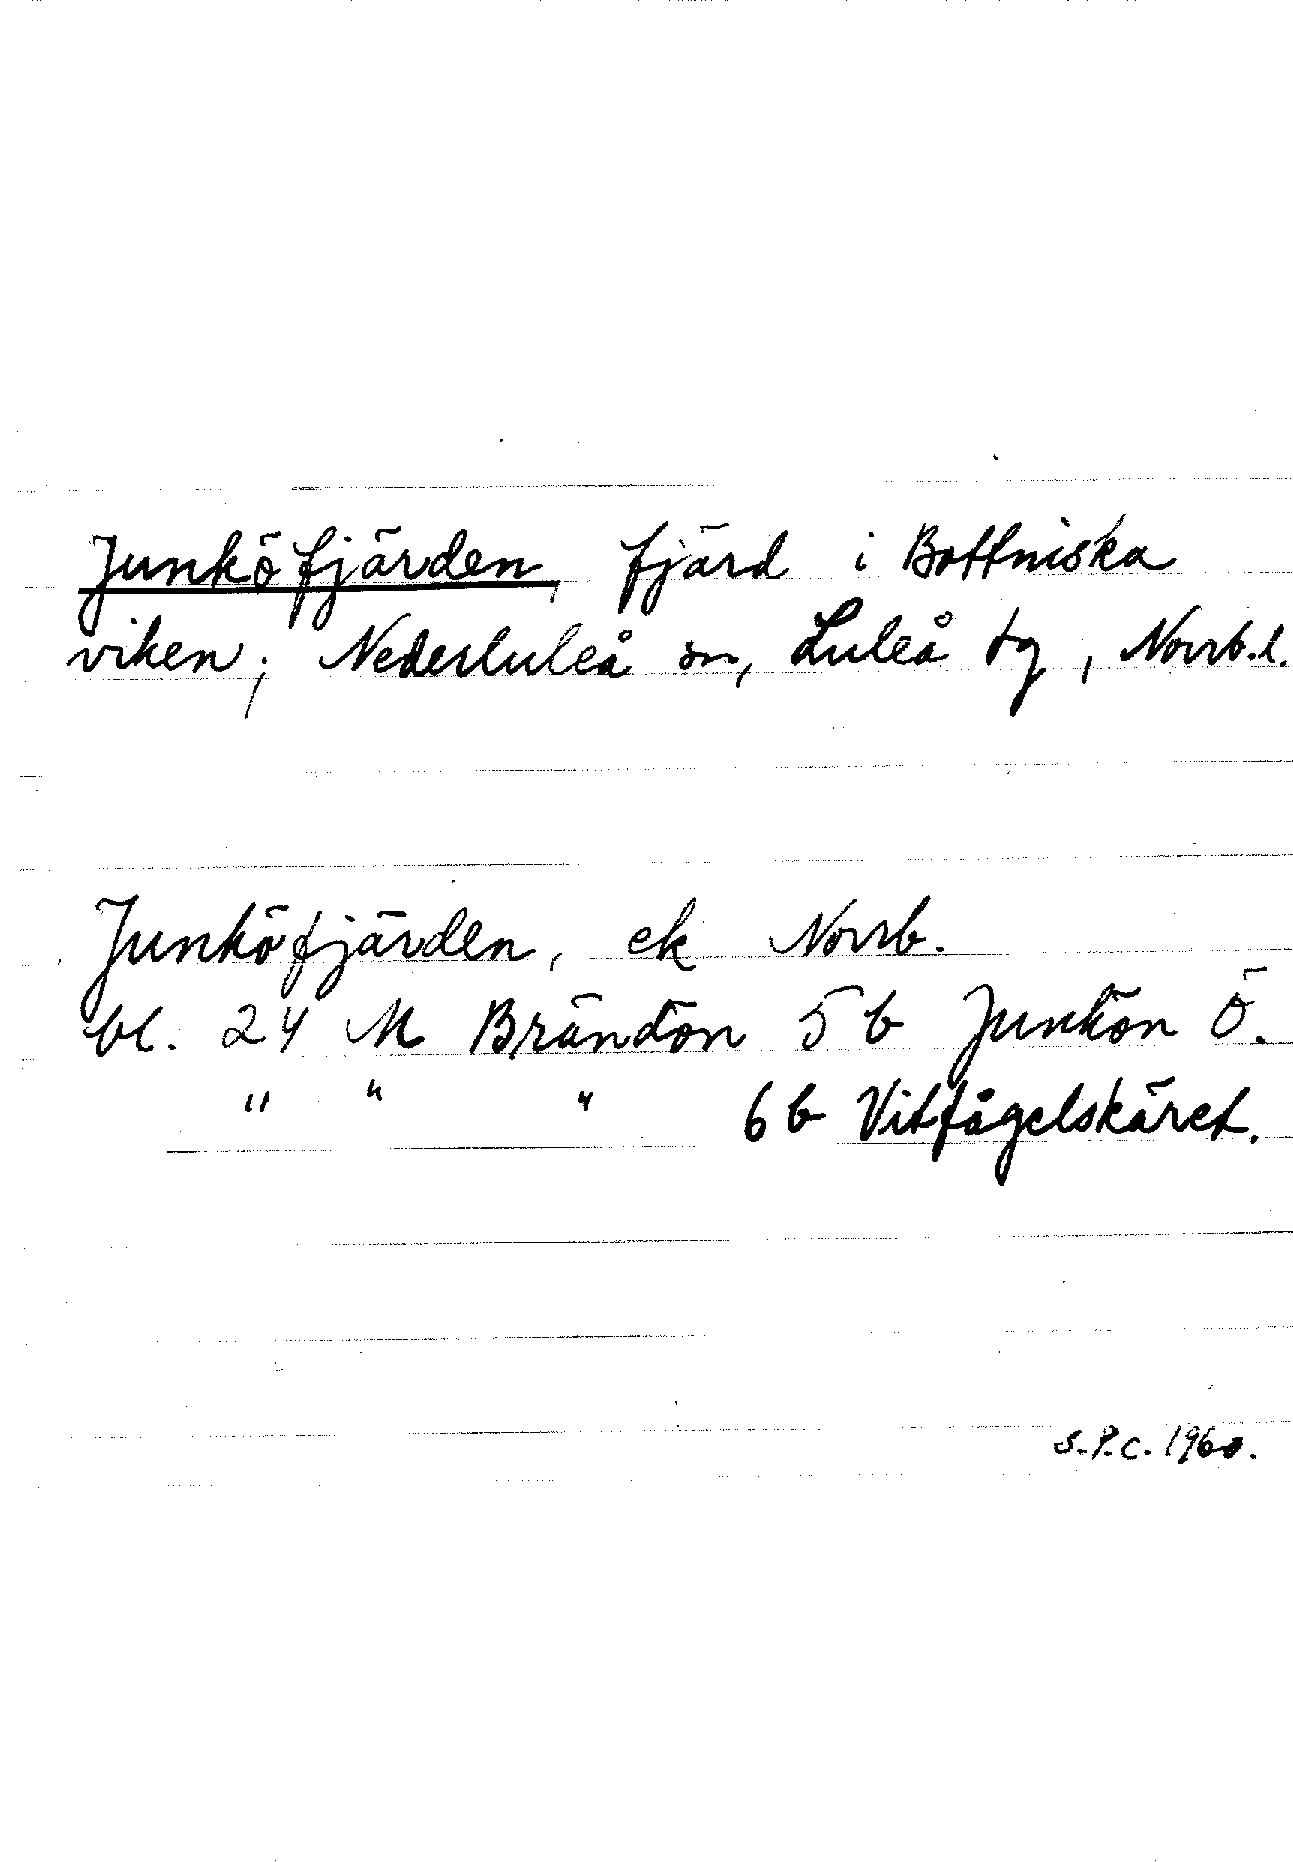 Junköfjärden, fjärd i Bottniska
viken; Nederluleå sn, Luleå tg, Norrb.l.
Junköfjärden, ek Norrb.
bl. 24 M Brändön 5 b Junkön Ö.
" " " 6 b Vitfågelskäret.
S.P.C. 1960.